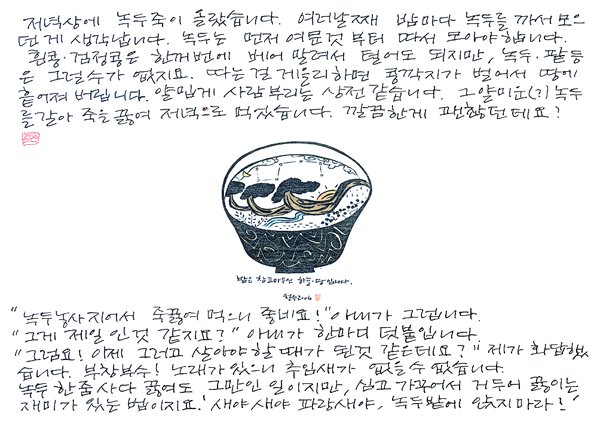 저녁상에 녹두죽이 올랐습니다. 여러날째 밤마다 녹두를 까서 모으
던게 생각납니다. 녹두는 먼저 여문것 부터 따서 모아야 합니다.
흰콩·검정콩은 한꺼번에 베어 말려서 털어도 되지만, 녹두·팥등
은 그럴수가 없지요. 따는걸 게을리하면 콩깍지가 벌어서 땅에
흩어져 버립니다. 얄밉게 사람부리는 상전 같습니다. 그 얄미운(?) 녹두
를 갈아 죽을 끓여 저녁으로 먹었습니다. 깔끔한게 괜찮던데요?
밥은 참고마우신 하늘·땅입니다.
철수2006
"녹두농사 지어서 죽끓여 먹으니 좋네요!" 아내가 그럽니다.
"그게 제일 인것 같지요?" 아내가 한마디 덧붙입니다.
"그럼요! 이제 그러고 살아야 할 때가 된것 같은데요?" 제가 화답했
습니다. 부창부수! 노래가 있으니 추임새가 없을수 없습니다.
녹두 한줌 사다 끓여도 그만인 일이지만, 심고 가꾸어서 거두어 끓이는
재미가 있는 법이지요. '새야 새야 파랑새야, 녹두밭에 앉지마라!'